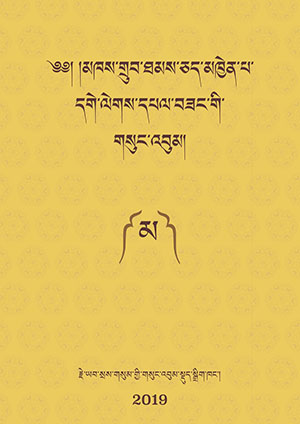 ༄༅། །མཁས་གྲུབ་ཐམས་ཅད་མཁྱེན་པ་
དགེ་ལེགས་དཔལ་བཟང་གི་
གསུང་འབུམ།
༼ མ ༽
རྗེ་ཡབ་སྲས་གསུམ་གྱི་གསུང་འབུམ་སྡུད་སྒྲིག་ཁང་།
2019